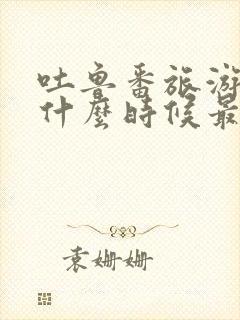 吐鲁番旅游
什麼時候最
袁姗姗